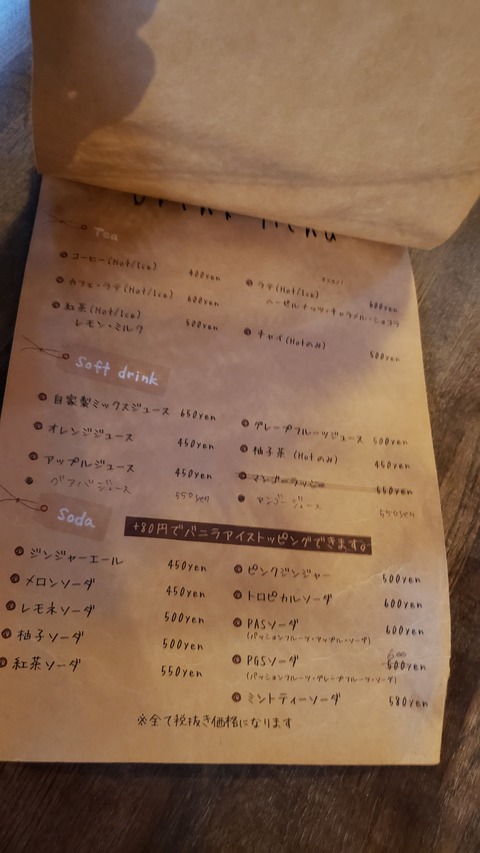 Drink Menu
Tea
コーヒー(Hot/Ice) 400yen
カフェ・ラテ(Hot/Ice) 600yen
紅茶(Hot/Ice) 500yen
レモン・ミルク
ラテ(Hot/Ice) 600yen
ヘーゼルナッツ・キャラメル・ショコラ
チャイ(Hotのみ) 500yen
Soft drink
自家製ミックスジュース 650yen
オレンジジュース 450yen
アップルジュース 450yen
グァバジュース 550yen
グレープフルーツジュース 500yen
柚子茶(Hotのみ) 450yen
マンゴーラッシー 650yen
マンゴージュース 550yen
Soda
+80円でバニラアイストッピングできます。
ジンジャーエール 450yen
メロンソーダ 450yen
レモネソーダ 500yen
柚子ソーダ 500yen
紅茶ソーダ 550yen
ピンクジンジャー 500yen
トロピカルソーダ 600yen
PASソーダ 600yen
(パッションフルーツ・アップル・ソーダ)
PGSソーダ 600yen
(パッションフルーツ・グレープフルーツ・ソーダ)
ミントティーソーダ 580yen
※全て税抜き価格になります